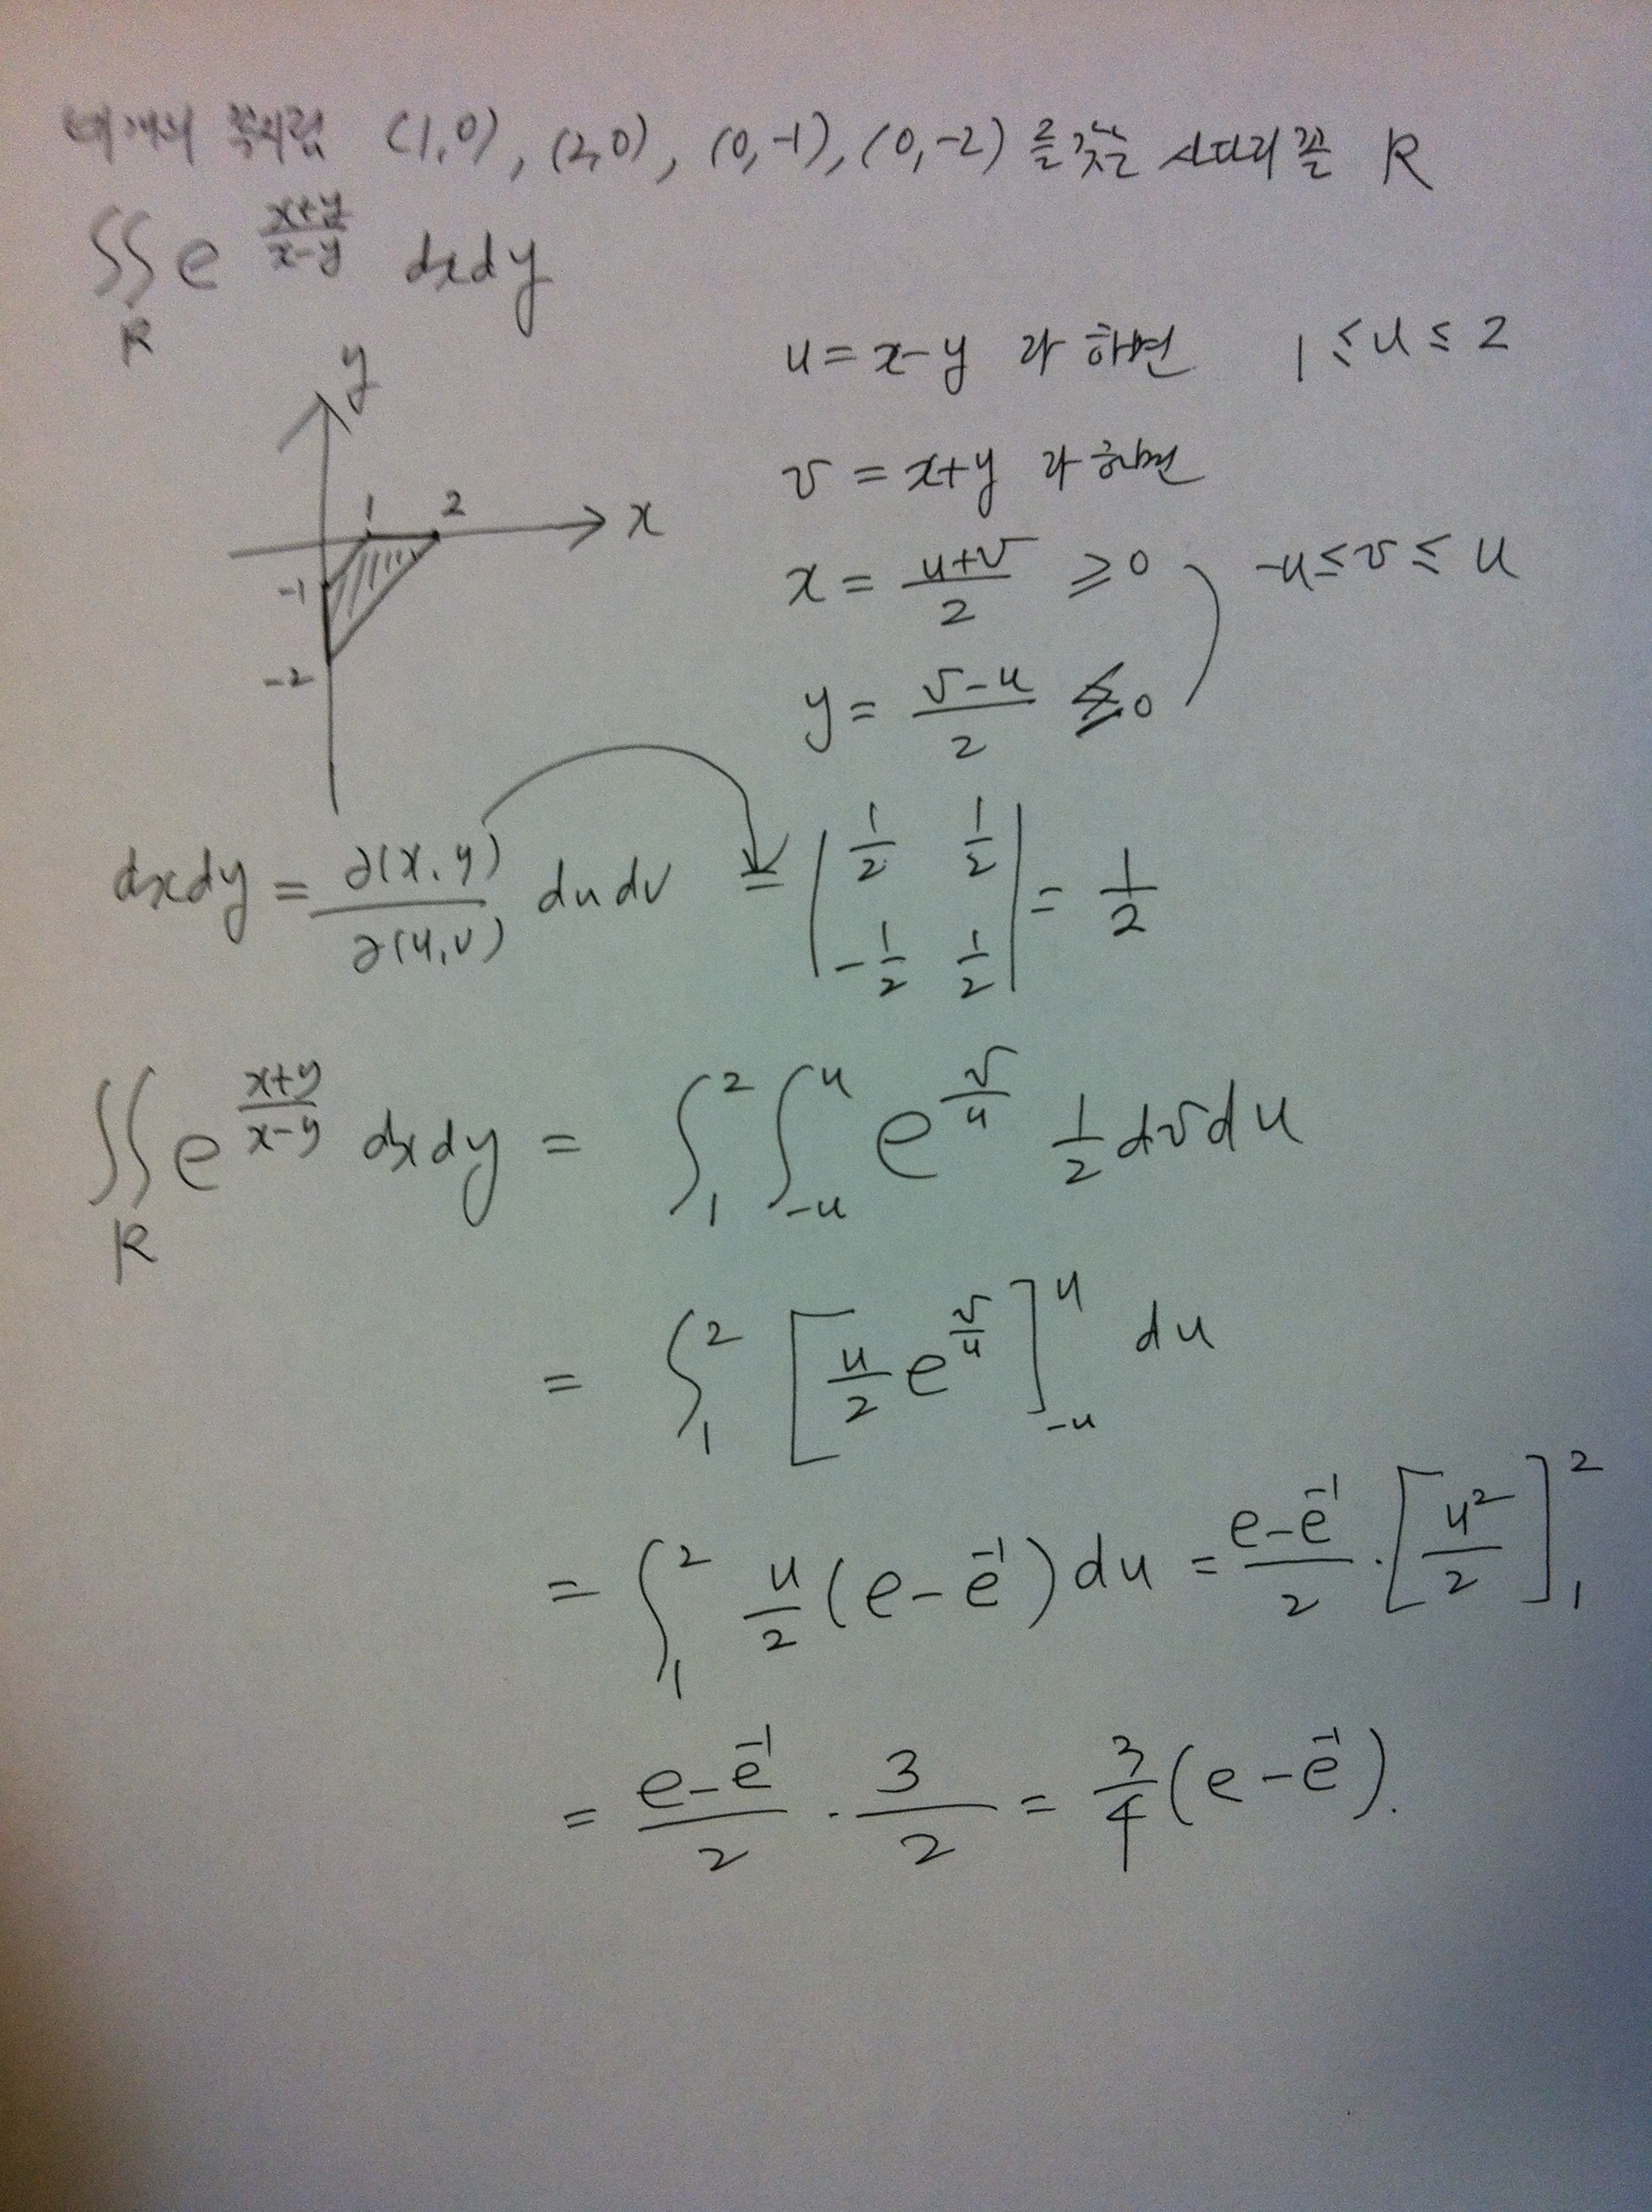 네 개의 꼭지점 (1,0), (2,0), (0,-1), (0,-2) 를 갖는 사다리꼴 R
∬_R e^{\frac{x+y}{x-y}} dxdy
y
1 2 x
-1
-2
u = x-y 라 하면 1 ≤ u ≤ 2
v = x+y 라 하면
x = \frac{u+v}{2} ≥ 0 -u ≤ v ≤ u
y = \frac{v-u}{2} ≤ 0
dxdy = \frac{∂(x,y)}{∂(u,v)} dudv = \begin{vmatrix} \frac{1}{2} & \frac{1}{2} \\ -\frac{1}{2} & \frac{1}{2} \end{vmatrix} = \frac{1}{2}
∬_R e^{\frac{x+y}{x-y}} dxdy = ∫_1^2 ∫_{-u}^{u} e^{\frac{v}{u}} \frac{1}{2} dvdu
= ∫_1^2 [\frac{u}{2} e^{\frac{v}{u}}]_{-u}^{u} du
= ∫_1^2 \frac{u}{2} (e-e^{-1}) du = \frac{e-e^{-1}}{2} · [\frac{u^2}{2}]_1^2
= \frac{e-e^{-1}}{2} · \frac{3}{2} = \frac{3}{4} (e-e^{-1}).